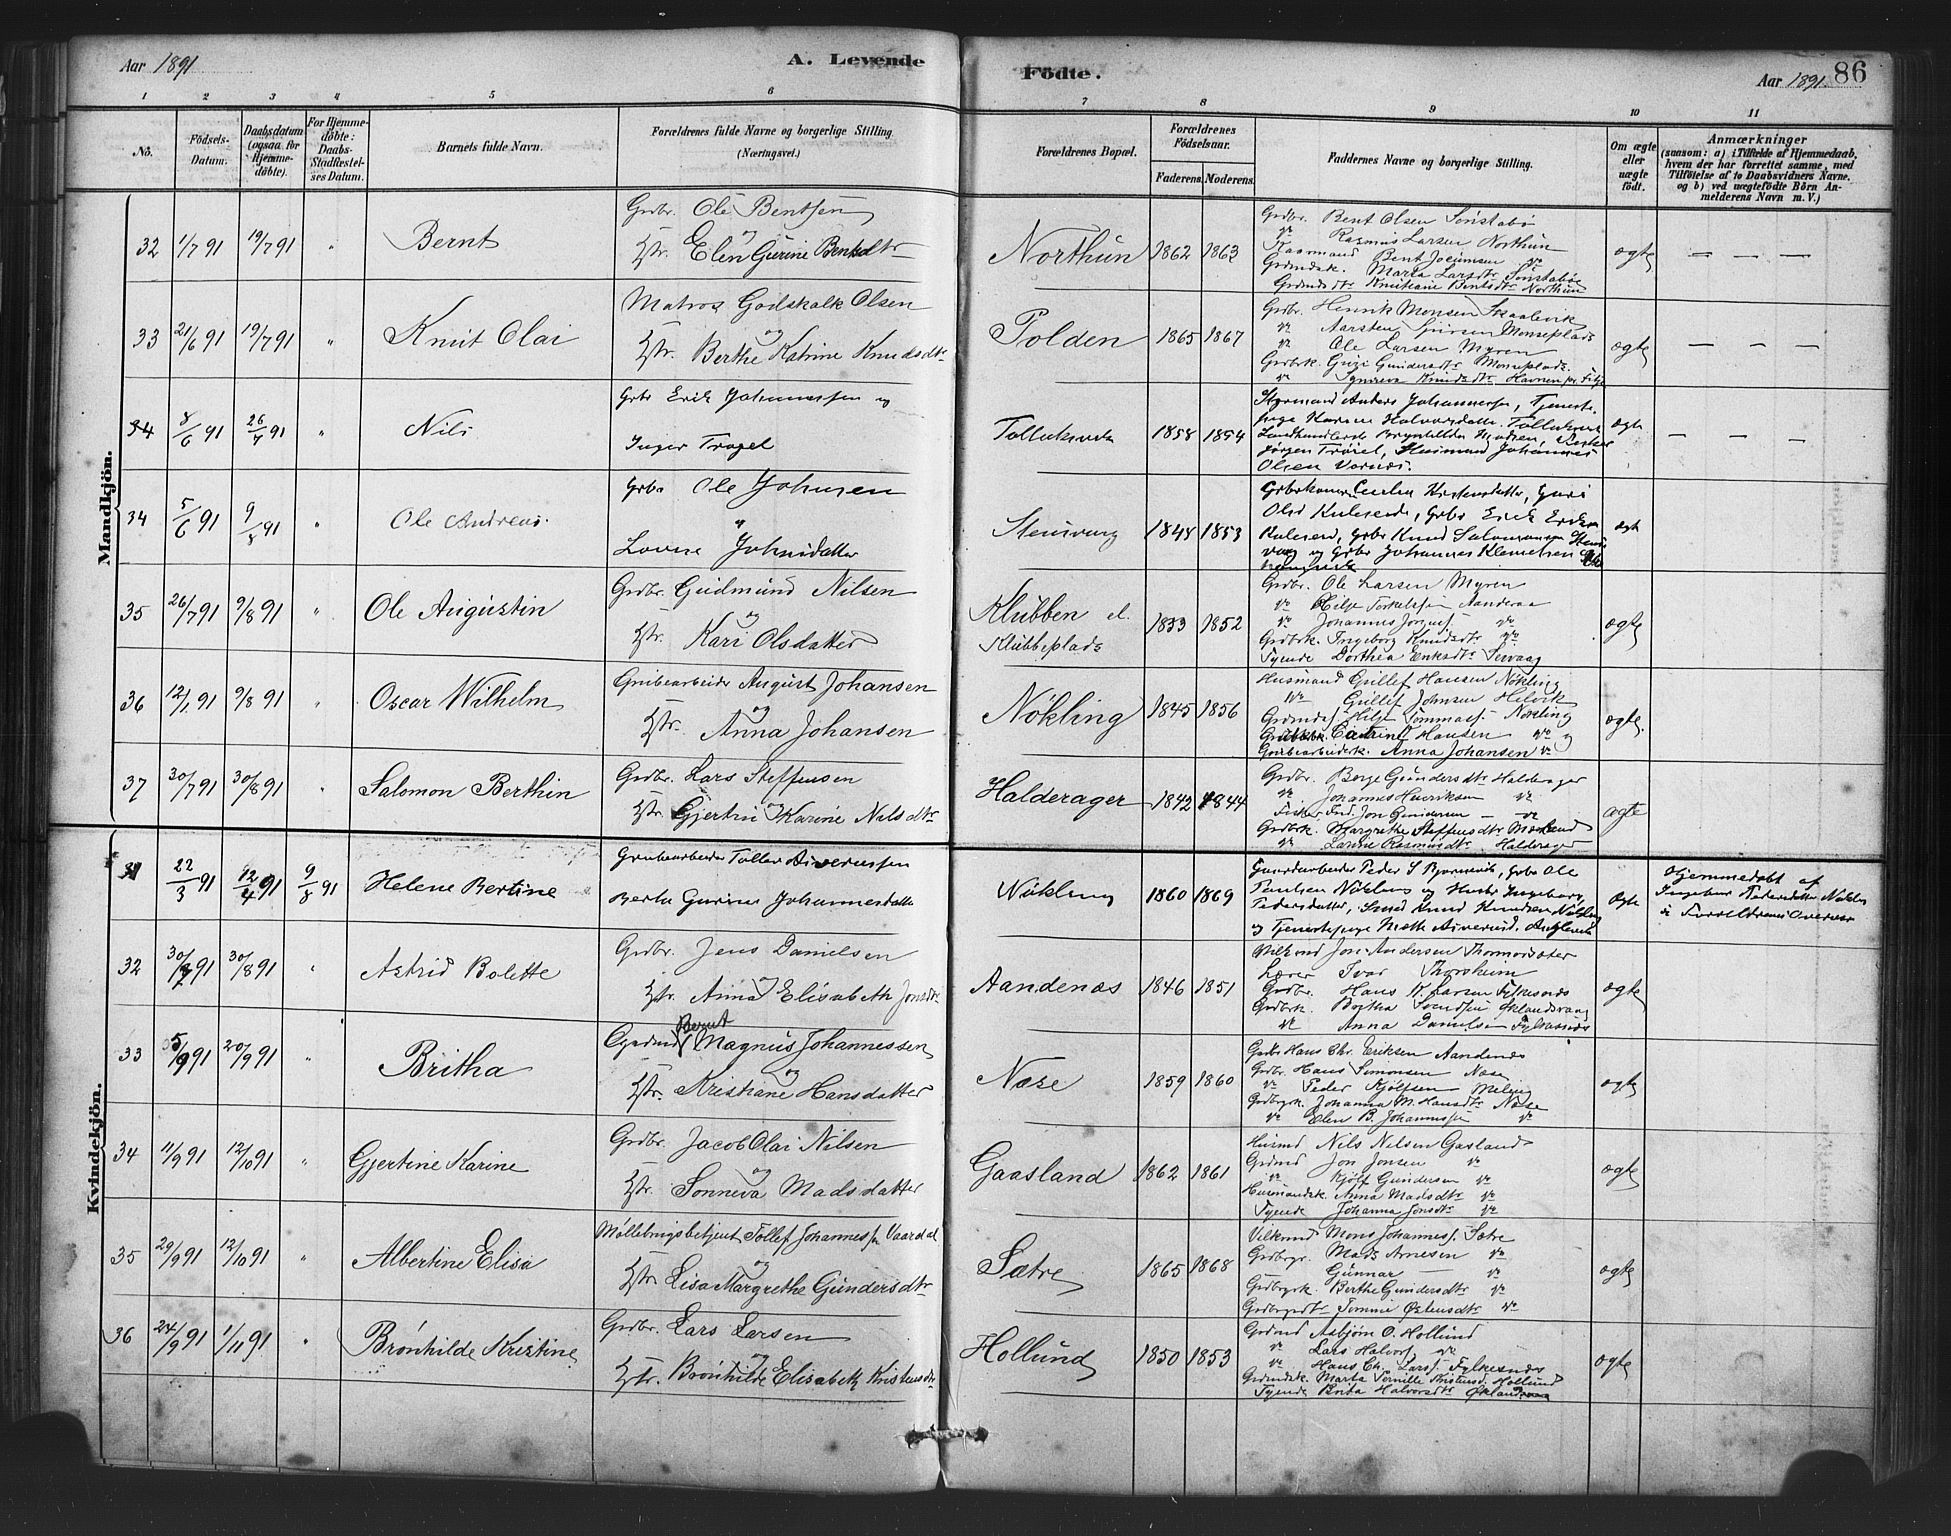 Aar 1891
A. Levende
Födte.
Aar 1891.
86
1 2 3 4 5 6 7 8 9 10 11
No.
Födsels-
Datum.
Daabsdatum
(ogsaa for
Hjemme-
døbte).
For Hjemme-
døbte:
Daabs-
Stadfæstel-
ses Datum.
Barnets fulde Navn.
Forældrenes fulde Navne og borgerlige Stilling
(Næringsvei.)
Forældrenes Bopæl.
Forældrenes
Födselsaar.
Faderens. Moderens.
Faddernes Navne og borgerlige Stilling.
Om ægte
eller
uægte
födt.
Anmærkninger
(saasom: a) i Tilfælde af Hjemmedaab,
hvem der har forrettet samme, med
Tilföielse af to Daabsvidners Navne,
og b) ved uægtefödte Börn An-
melderens Navn m. V.)
Mandkjön.
32 1/7 91 19/7 91 " Bernt
Grdbr. Ole Bentsen
og
Hstr. Elen Gurine Bentsdtr
Northun 1862 1863
Grdbr. Bent Olsen Sønstabø
do Rasmus Larsen Northun
Bent Jocumsen do
Marta Larsdtr Sønstabø
Kristiane Bentsdtr Northun
ægte — — —
33 21/6 91 19/7 91 " Knut Olai
Matros Godskalk Olsen
og
Hstr. Berthe Katrine Knudsdtr
Polden 1865 1867
Grdbr. Henrik Monsen Skaalevik
do Monseplads
do Ole Larsen Myren
Grdbrk. Guri Gundersdtr Monseplads.
do Synneva Knudsdtr Havnen
ægte — — —
34 8/6 91 26/7 91 " Nils
Grbr Erik Johannessen og
Inger Trozel
1858 1854
Styrmand Anders Johannessen, Tjeneste-
pige Karen Halvorsdatter
Landhandlerske Brynhilda
Jørgen Husmand Johannes
Olsen Vornæs.
ægte — — —
34 5/6 91 9/8 91 " Ole Andreas.
Grbr Ole Johnsen
"
Lovise Johnsdatter
Stensvang 1848 1853
Grbrkone Cecilia Kristensdatter, Guri
Olsd Kulesend, Grbr Erik Eriksen
Kulesend, Grbr Knud Salomonsen Stens
vag og Grbr Johannes Klemetsen
ægt
35 26/7 91 9/8 91 " Ole Augustin
Grdbr. Gudmund Nilsen
og
Hstr. Kari Olsdatter
Klubben el.
Klubbeplads
1853 1852
Grdbr. Ole Larsen Myren
do Helje Torkelssen Aanderaa
do Johannes do
Grdbrk. Ingeborg Knudsdtr do
Tyende Dorthea Eriksdtr Servaag
ægte
36 12/1 91 9/8 91 " Oscar Wilhelm
Grubearbeider August Johansen
og
Hstr. Anna Johansen
Nökling 1845 1856
Husmand Gullef Hansen Nökling
do Gullef Johnsen Helvik
Helje Tommass. Nökling
Catrine Hansen do og
Grubearbeiderk. Anna Johansen do
ægte.
37 30/7 91 30/8 91 " Salomon Berthin
Grdbr. Lars Steffensen
og
Hstr. Gjertin Karine Nilsdtr
Halderager 1842 1844
Grdbr. Børge Gundersdtr Halderager
do Johannes Henriksen do
Fisker Jon Gundersen — do
Grdbrk. Margrethe Steffensdtr Mæland
do Larine Rasmusdtr Halderager
ægte
Kvindekjön.
31 22/3 91 12/4 91 9/8 91 Helene Bertine
Grubearbeider Tollev
Berta Gurine Johannesdatter
Nökling 1860 1869
Grubearbeider Peder Grbr Ole
Paulsen Nöklings og Hustr Ingeborg
Pedersdatter, Smed Knud Knudsen Nökling
og Tjenestepige Mette
ægte
Hjemmedøbt af
Ingebor Pedersdatter Nökling
i Forældrenes
32 30/7 91 30/8 91 " Astrid Bolette
Grdbr. Jens Danielsen
og
Hstr. Anna Elisabeth Jonsdtr
Aandenæs 1846 1851
Jon Andersen
Lærer Ivar Thorsheim
Grdbr. Hans K. Larsen Fylkesnæs
Grdbrk. Øklandsvaag
do Anna Danielsen Fylkesnæs
ægte
33 5/9 91 20/9 91 " Britha
Bernt
Magnus Johannessen
og
Hstr. Kristiane Hansdatter
Næse 1859 1860
Grdbr Hans Chr. Eriksen Aandenæs
Grdbr. Hans Simonsen Næse
do Peder Kjølfsen
Johanna M. Hansdtr Næse
do Elen B. Johannessen do
ægte
34 11/9 91 12/10 91 " Gjertine Karine
Grdbr. Jacob Olai Nilsen
og
Hstr. Sonneva Madsdatter
Gaasland 1862 1861
Husmd Nils Nilsen Gasland
Grdmd Jon Jonsen do
do Kjöff Gundersen do
Husmandsk. Anna Madsdtr do
Tyende Johanna Jonsdtr do
ægte
35 29/9 91 12/10 91 " Albertine Elisa
Tollef Johannessen Vaardal
og
Hstr Lisa Margrethe Gundersdtr
Sætre 1865 1868
Mons Johanness. Sætre
Mads Arnesen do
Gunnar — do
Berthe Gundersdtr do
Tommine Østensdtr do
ægte
36 24/9 91 1/11 91 " Brønhilde Kristine
Grdbr. Lars Larsen
og
Hstr. Brønhilde Elisabeth
Hollund 1850 1853
Grdmd Asbjørn O. Hollund
do Lars Halvors. do
do Hans Ch. Larss. Fylkesnæs
Marta Hollund
Tyende Brita Halvorsdtr
ægte